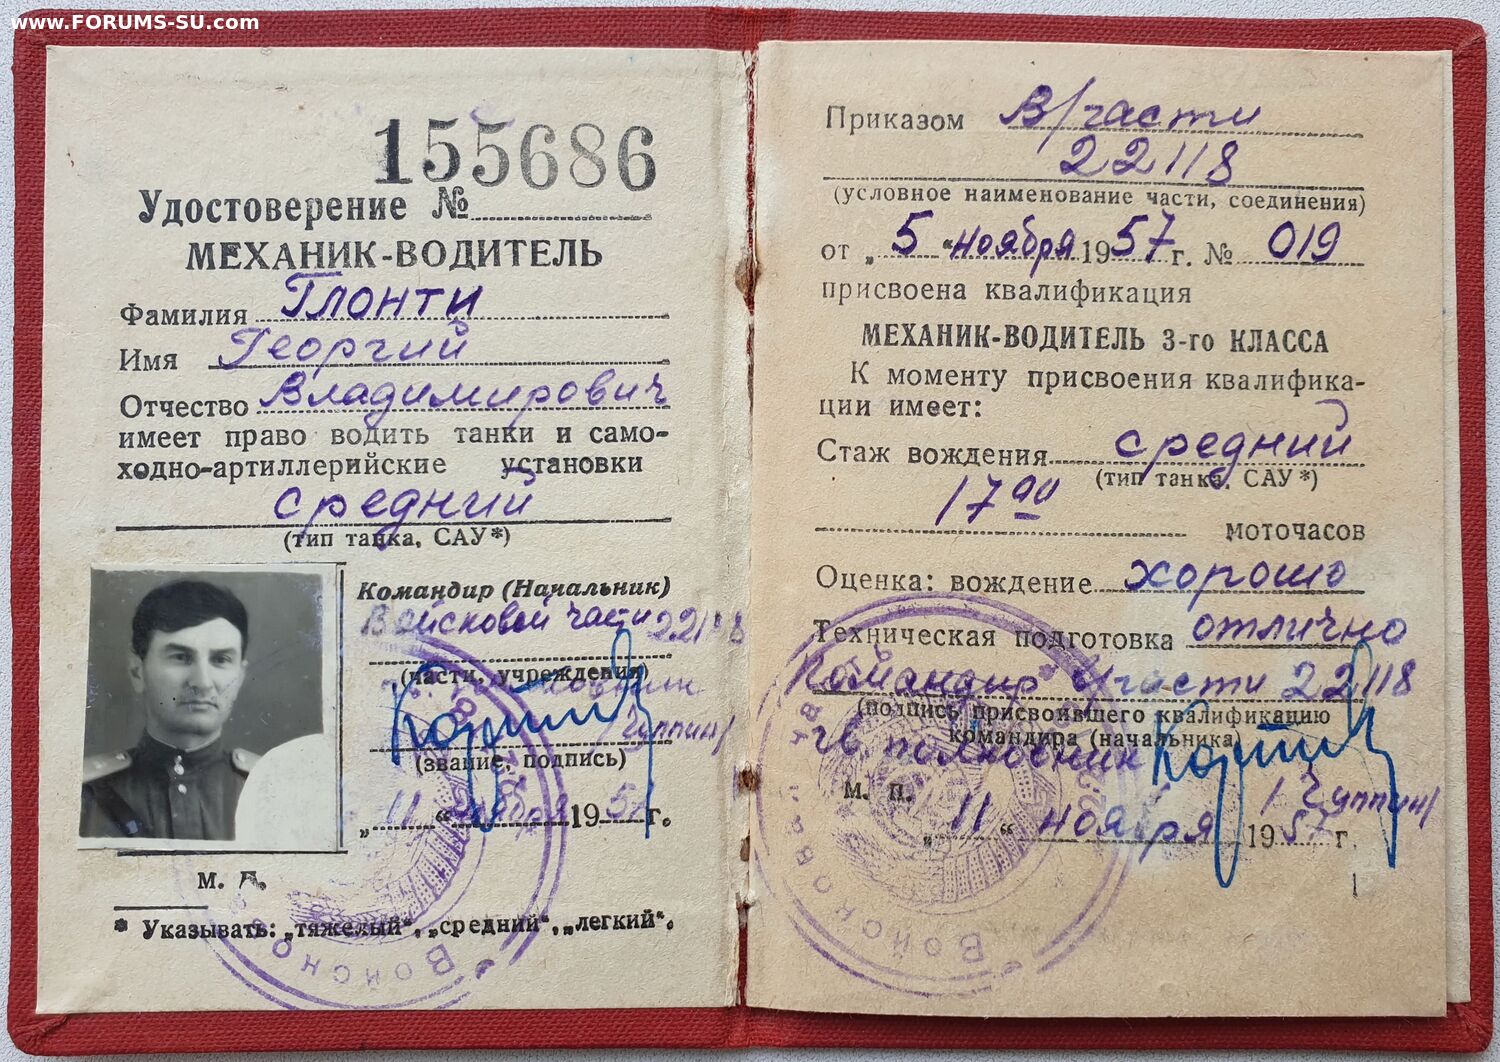 www.FORUMS-SU.com
155686
Удостоверение №
МЕХАНИК-ВОДИТЕЛЬ
Фамилия Глонти
Имя Георгий
Отчество Владимирович
имеет право водить танки и само-
ходно-артиллерийские установки
средний
(тип танка, САУ*)
Командир (Начальник)
Войсковой части 22118
(части, учреждения)
/Чуппин/
(звание, подпись)
„11“ ноября 1957 г.
М. П.
* Указывать: „тяжелый“, „средний“, „легкий“.
Приказом В/части
22118
(условное наименование части, соединения)
от „5“ ноября 1957 г. № 019
присвоена квалификация
МЕХАНИК-ВОДИТЕЛЬ 3-го КЛАССА
К моменту присвоения квалифика-
ции имеет:
Стаж вождения средний
(тип танка, САУ*)
моточасов
Оценка: вождение хорошо
Техническая подготовка отлично
Командир в/части 22118
(подпись присвоившего квалификацию
командира (начальника)
гв. полковник
/Чуппин/
М. П.
„11“ ноября 1957 г.